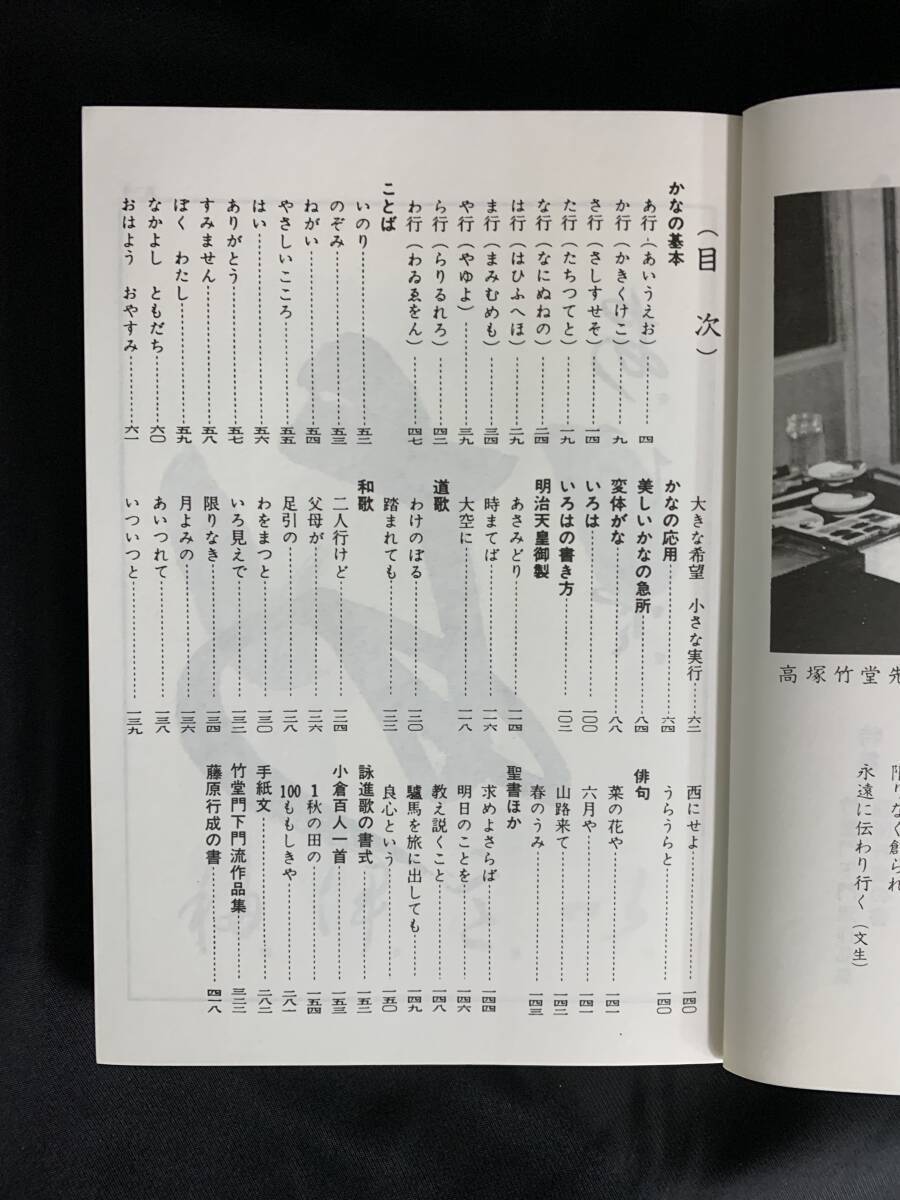 高塚竹堂先
永遠に伝わり行く(文生)
(目次)
かなの基本
あ行(あいうえお)……四
か行(かきくけこ)……九
さ行(さしすせそ)……一四
た行(たちつてと)……一九
な行(なにぬねの)……二四
は行(はひふへほ)……二九
ま行(まみむめも)……三四
や行(やゆよ)……三九
ら行(らりるれろ)……四二
わ行(わゐゑをん)……四七
ことば
いのり……五二
のぞみ……五三
ねがい……五四
やさしいこころ……五五
はい……五六
ありがとう……五七
すみません……五八
ぼく わたし……五九
なかよし ともだち……六〇
おはよう おやすみ……六一
大きな希望 小さな実行……六二
かなの応用……六四
美しいかなの急所……八四
変体がな……八八
いろは……一〇〇
いろはの書き方……一〇二
明治天皇御製
あさみどり……一一四
時まてば……一一六
大空に……一一八
道歌
わけのぼる……一二〇
踏まれても……一二二
和歌
二人行けど……一二四
父母が……一二六
足引の……一二八
わをまつと……一三〇
いろ見えで……一三二
限りなき……一三四
月よみの……一三六
あいつれて……一三八
いついつと……一三九
西にせよ……一四〇
うらうらと……一四〇
俳句
菜の花や……一四一
六月や……一四一
山路来て……一四二
春のうみ……一四三
聖書ほか
求めよさらば……一四四
明日のことを……一四六
教え説くこと……一四八
驢馬を旅に出しても……一四九
良心という……一五〇
詠進歌の書式……一五二
小倉百人一首……一五三
1秋の田の……一五四
100ももしきや……二八一
手紙文……二八二
竹堂門下門流作品集……三二二
藤原行成の書……四一八